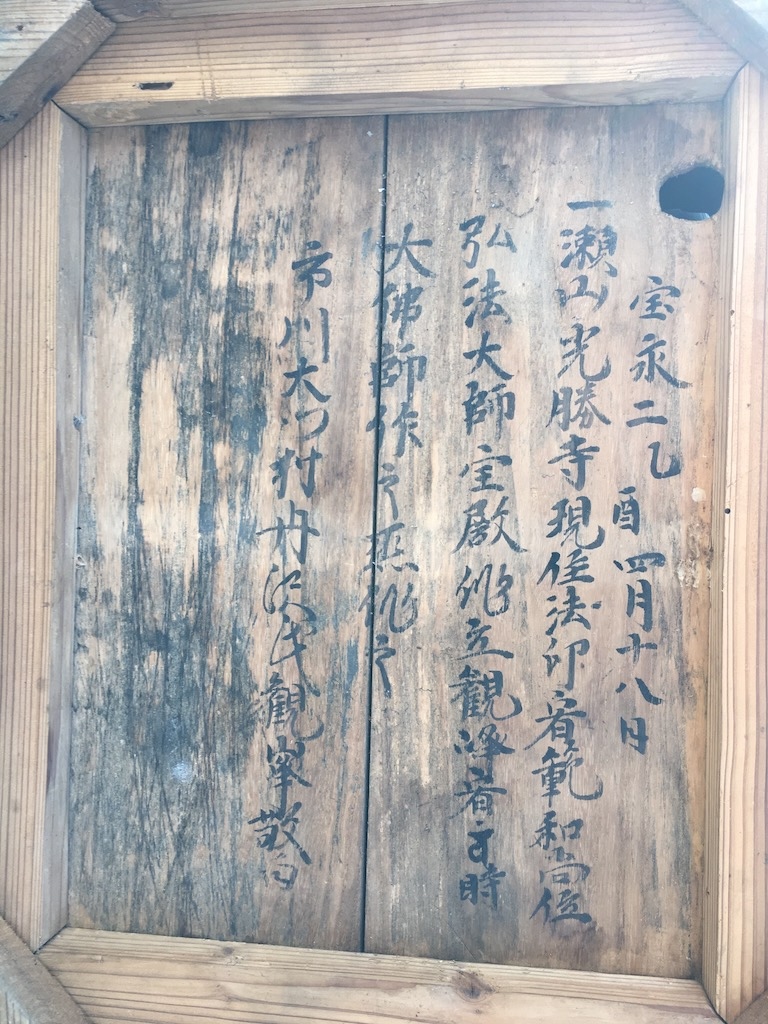 宝永二乙酉四月十八日
一瀬山光勝寺現住法印宥範和尚位
弘法大師宝殿作立観峰宥 時
大佛師作之 作之
市川大門村丹沢氏観峯敬白